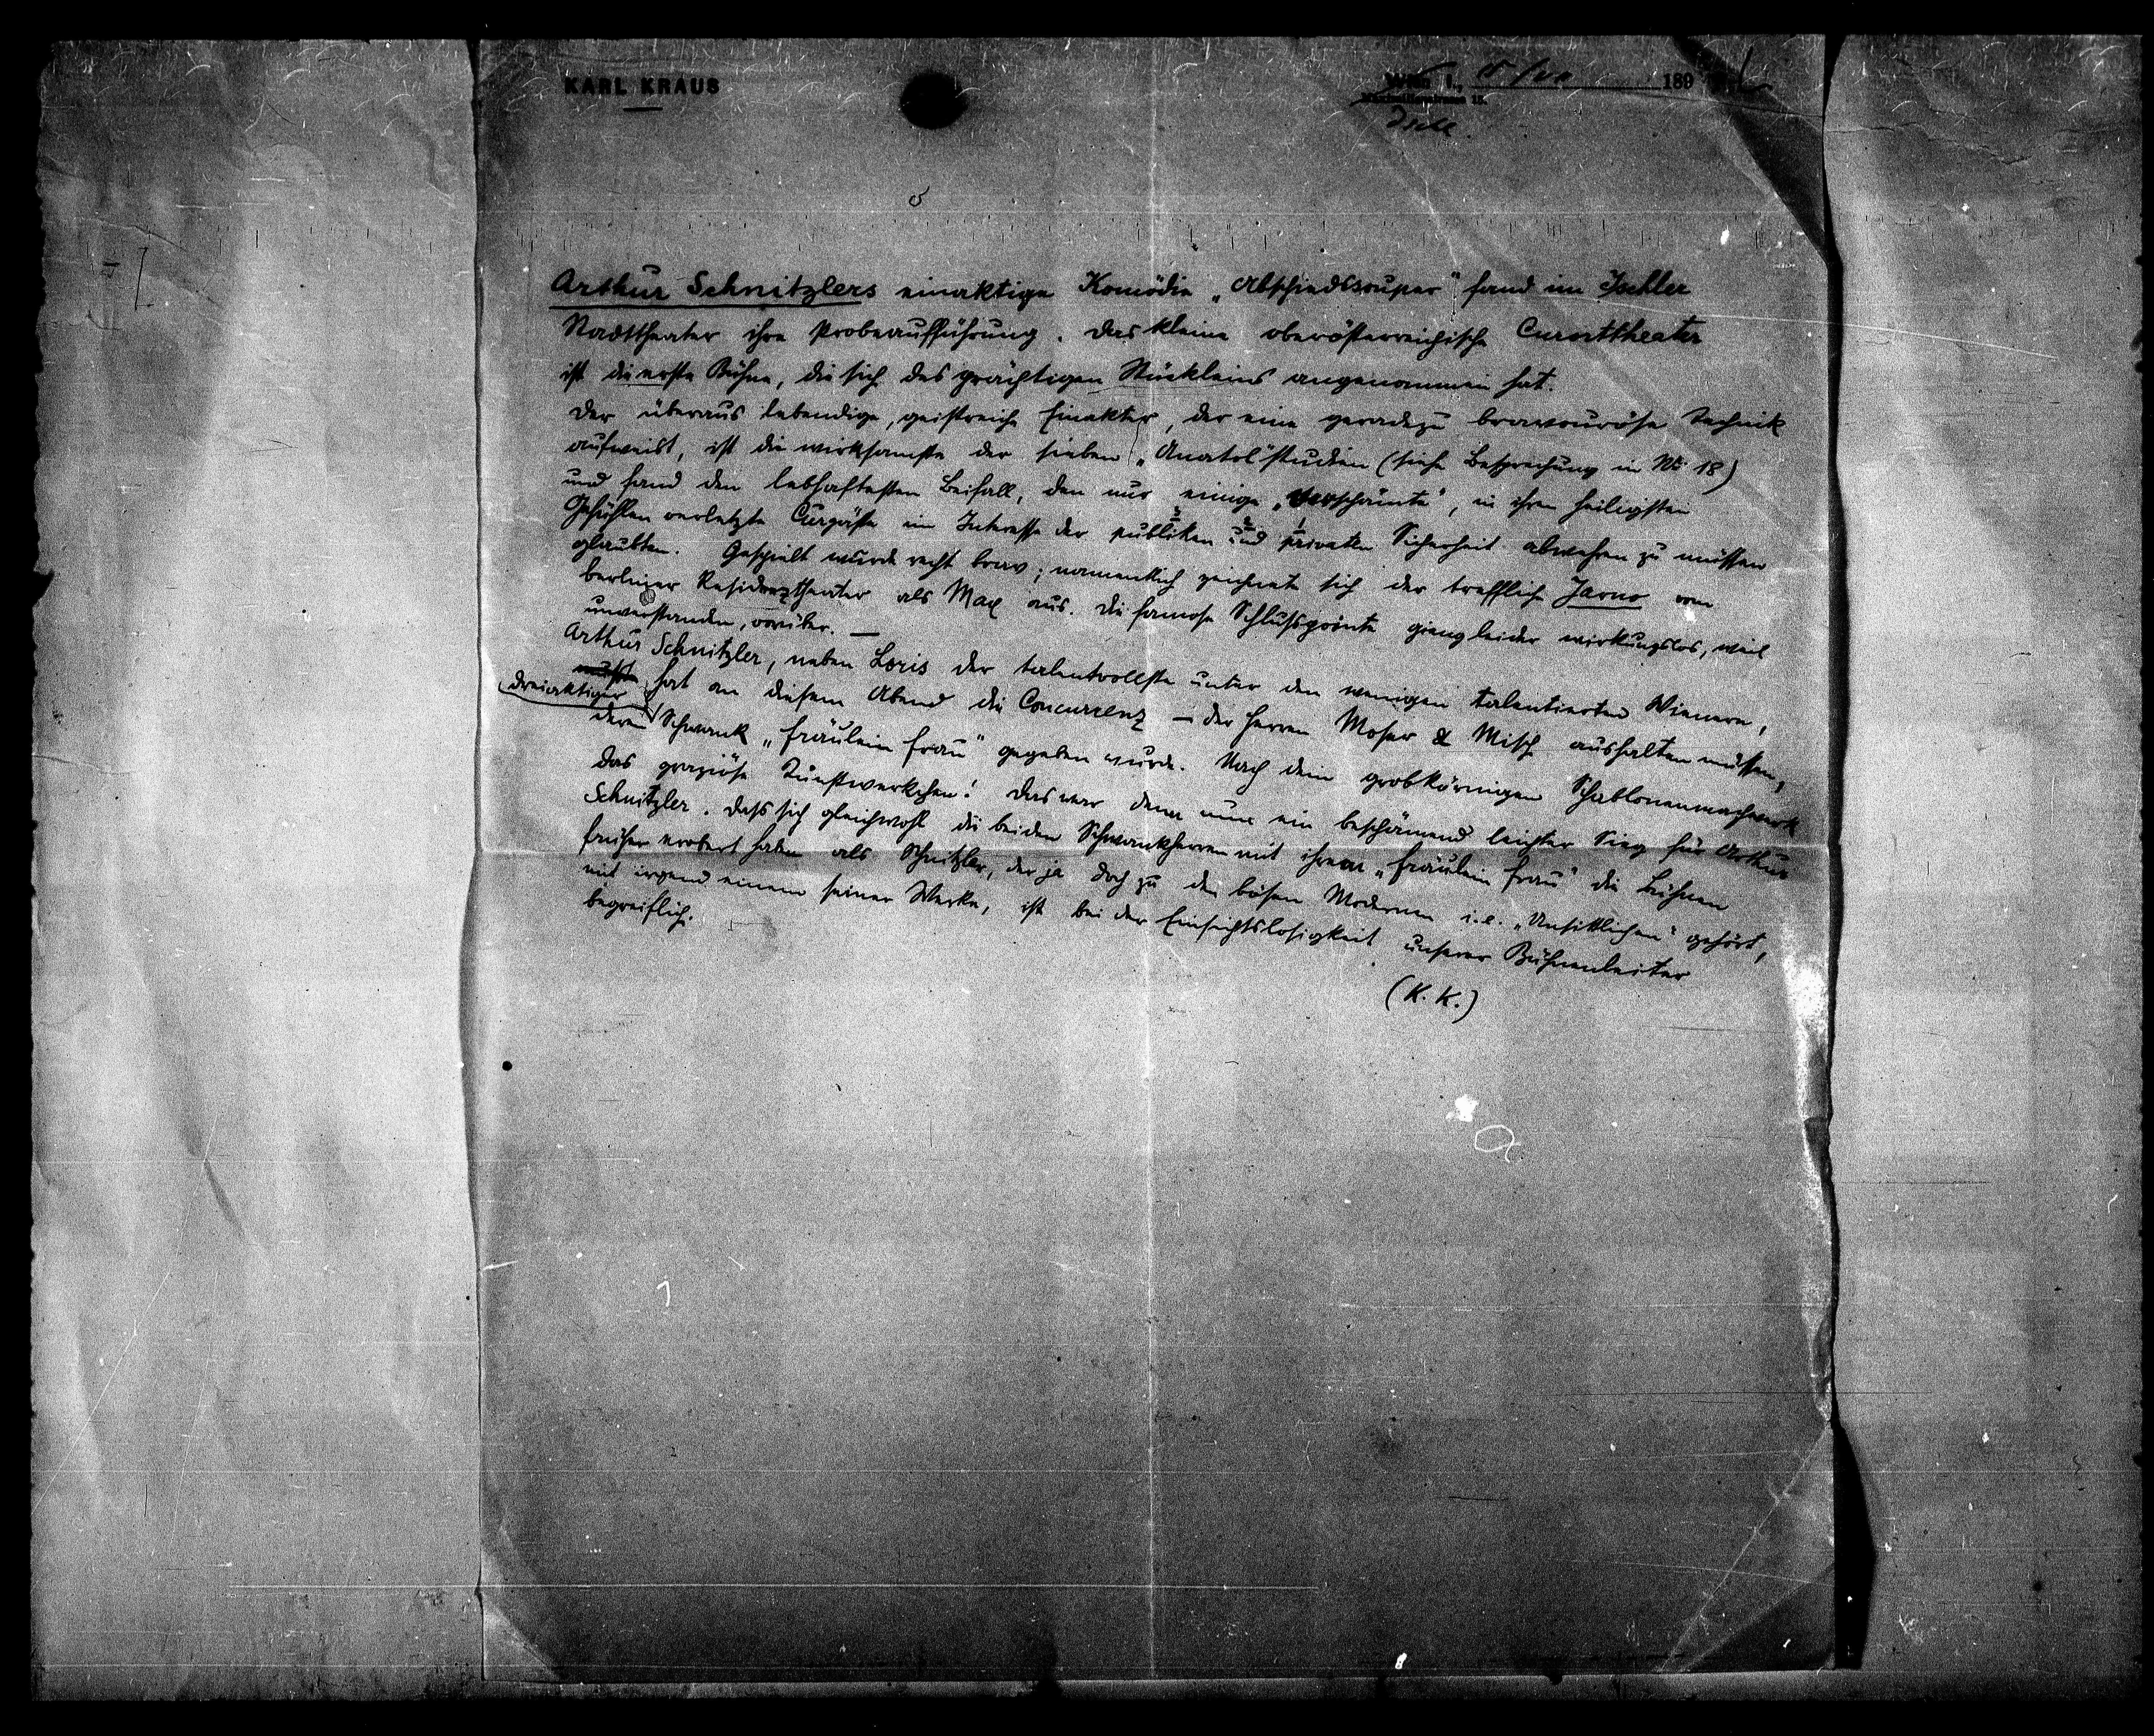 KARL KRAUS
Wien I., 189
Maximilianstrasse 13.
Ischl.
Arthur Schnitzlers einaktige Komödie „Abschiedssouper“ fand im Ischler
Stadttheater ihre Probeaufführung. Das kleine oberösterreichische Curorttheater
ist die erste Bühne, die sich des prächtigen Stückleins angenommen hat.
Der überaus lebendige, geistreiche Einakter, der eine geradezu bravouröse Technik
aufweist, ist die wirksamste der sieben „Anatol“studien (siehe Besprechung in No. 18)
und fand den lebhaftesten Beifall, den nur einige „verschämte“, in ihren heiligsten
Gefühlen verletzte Curgäste im Interesse der publiken und privaten Sicherheit abwehren zu müssen
glaubten. Gespielt wurde recht brav; namentlich zeichnete sich der treffliche Jarno vom
berliner Residenztheater als Max aus. Die famose Schlußpointe gieng leider wirkungslos, weil
unverstanden, vorüber. —
Arthur Schnitzler, neben Loris der talentvollste unter den wenigen talentierten Wienern,
hat an diesem Abend die Concurrenz — der Herren Moser & Misch aushalten müssen,
deren dreiaktiger Schwank „Fräulein Frau“ gegeben wurde. Nach dem grobkörnigen Schablonenmachwerk
das graziöse Kunstwerkchen! Das war denn nun ein beschämend leichter Sieg für Arthur
Schnitzler. Dass sich gleichwohl die beiden Schwankherren mit ihrem „Fräulein Frau“ die Bühnen
früher erobert haben als Schnitzler, der ja doch zu den bösen Modernen i.e. „Unsittlichen“ gehört,
mit irgend einem seiner Werke, ist bei der Einsichtslosigkeit unserer Bühnenleiter
begreiflich.
(K. K.)